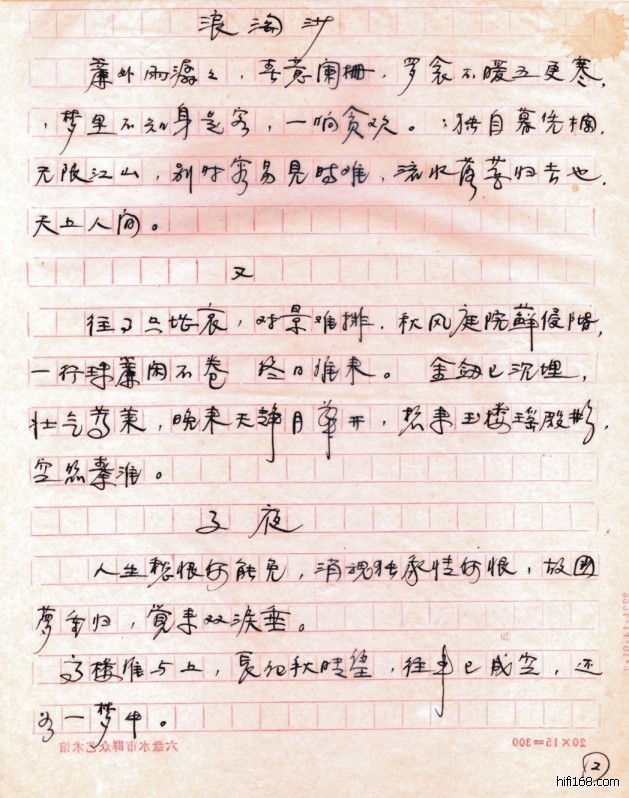 浪淘沙
簾外雨潺々，春意阑栅，罗衾不暖五更寒，
，梦里不知身是客，一响贪欢。：独自暮凭栏，
无限江山，别时容易見时难，流水落花归去也，
天上人间。
又
往事只堪哀，对景难排，秋风庭院蘚侵階，
一行珠簾闲不卷 终日谁来。 金劍已沉埋，
壮气蒿莱，晚来天静月華开，想来玉楼瑤殿影，
空照秦淮。
子夜
人生愁恨何能免，消魂独我情何恨，故國
夢重归，觉来双涙垂。
高楼谁与上，長记秋晴望，往事已成空，还
如一梦中。
六盘水市群众艺术馆
20×15=300
2
hifi168.com